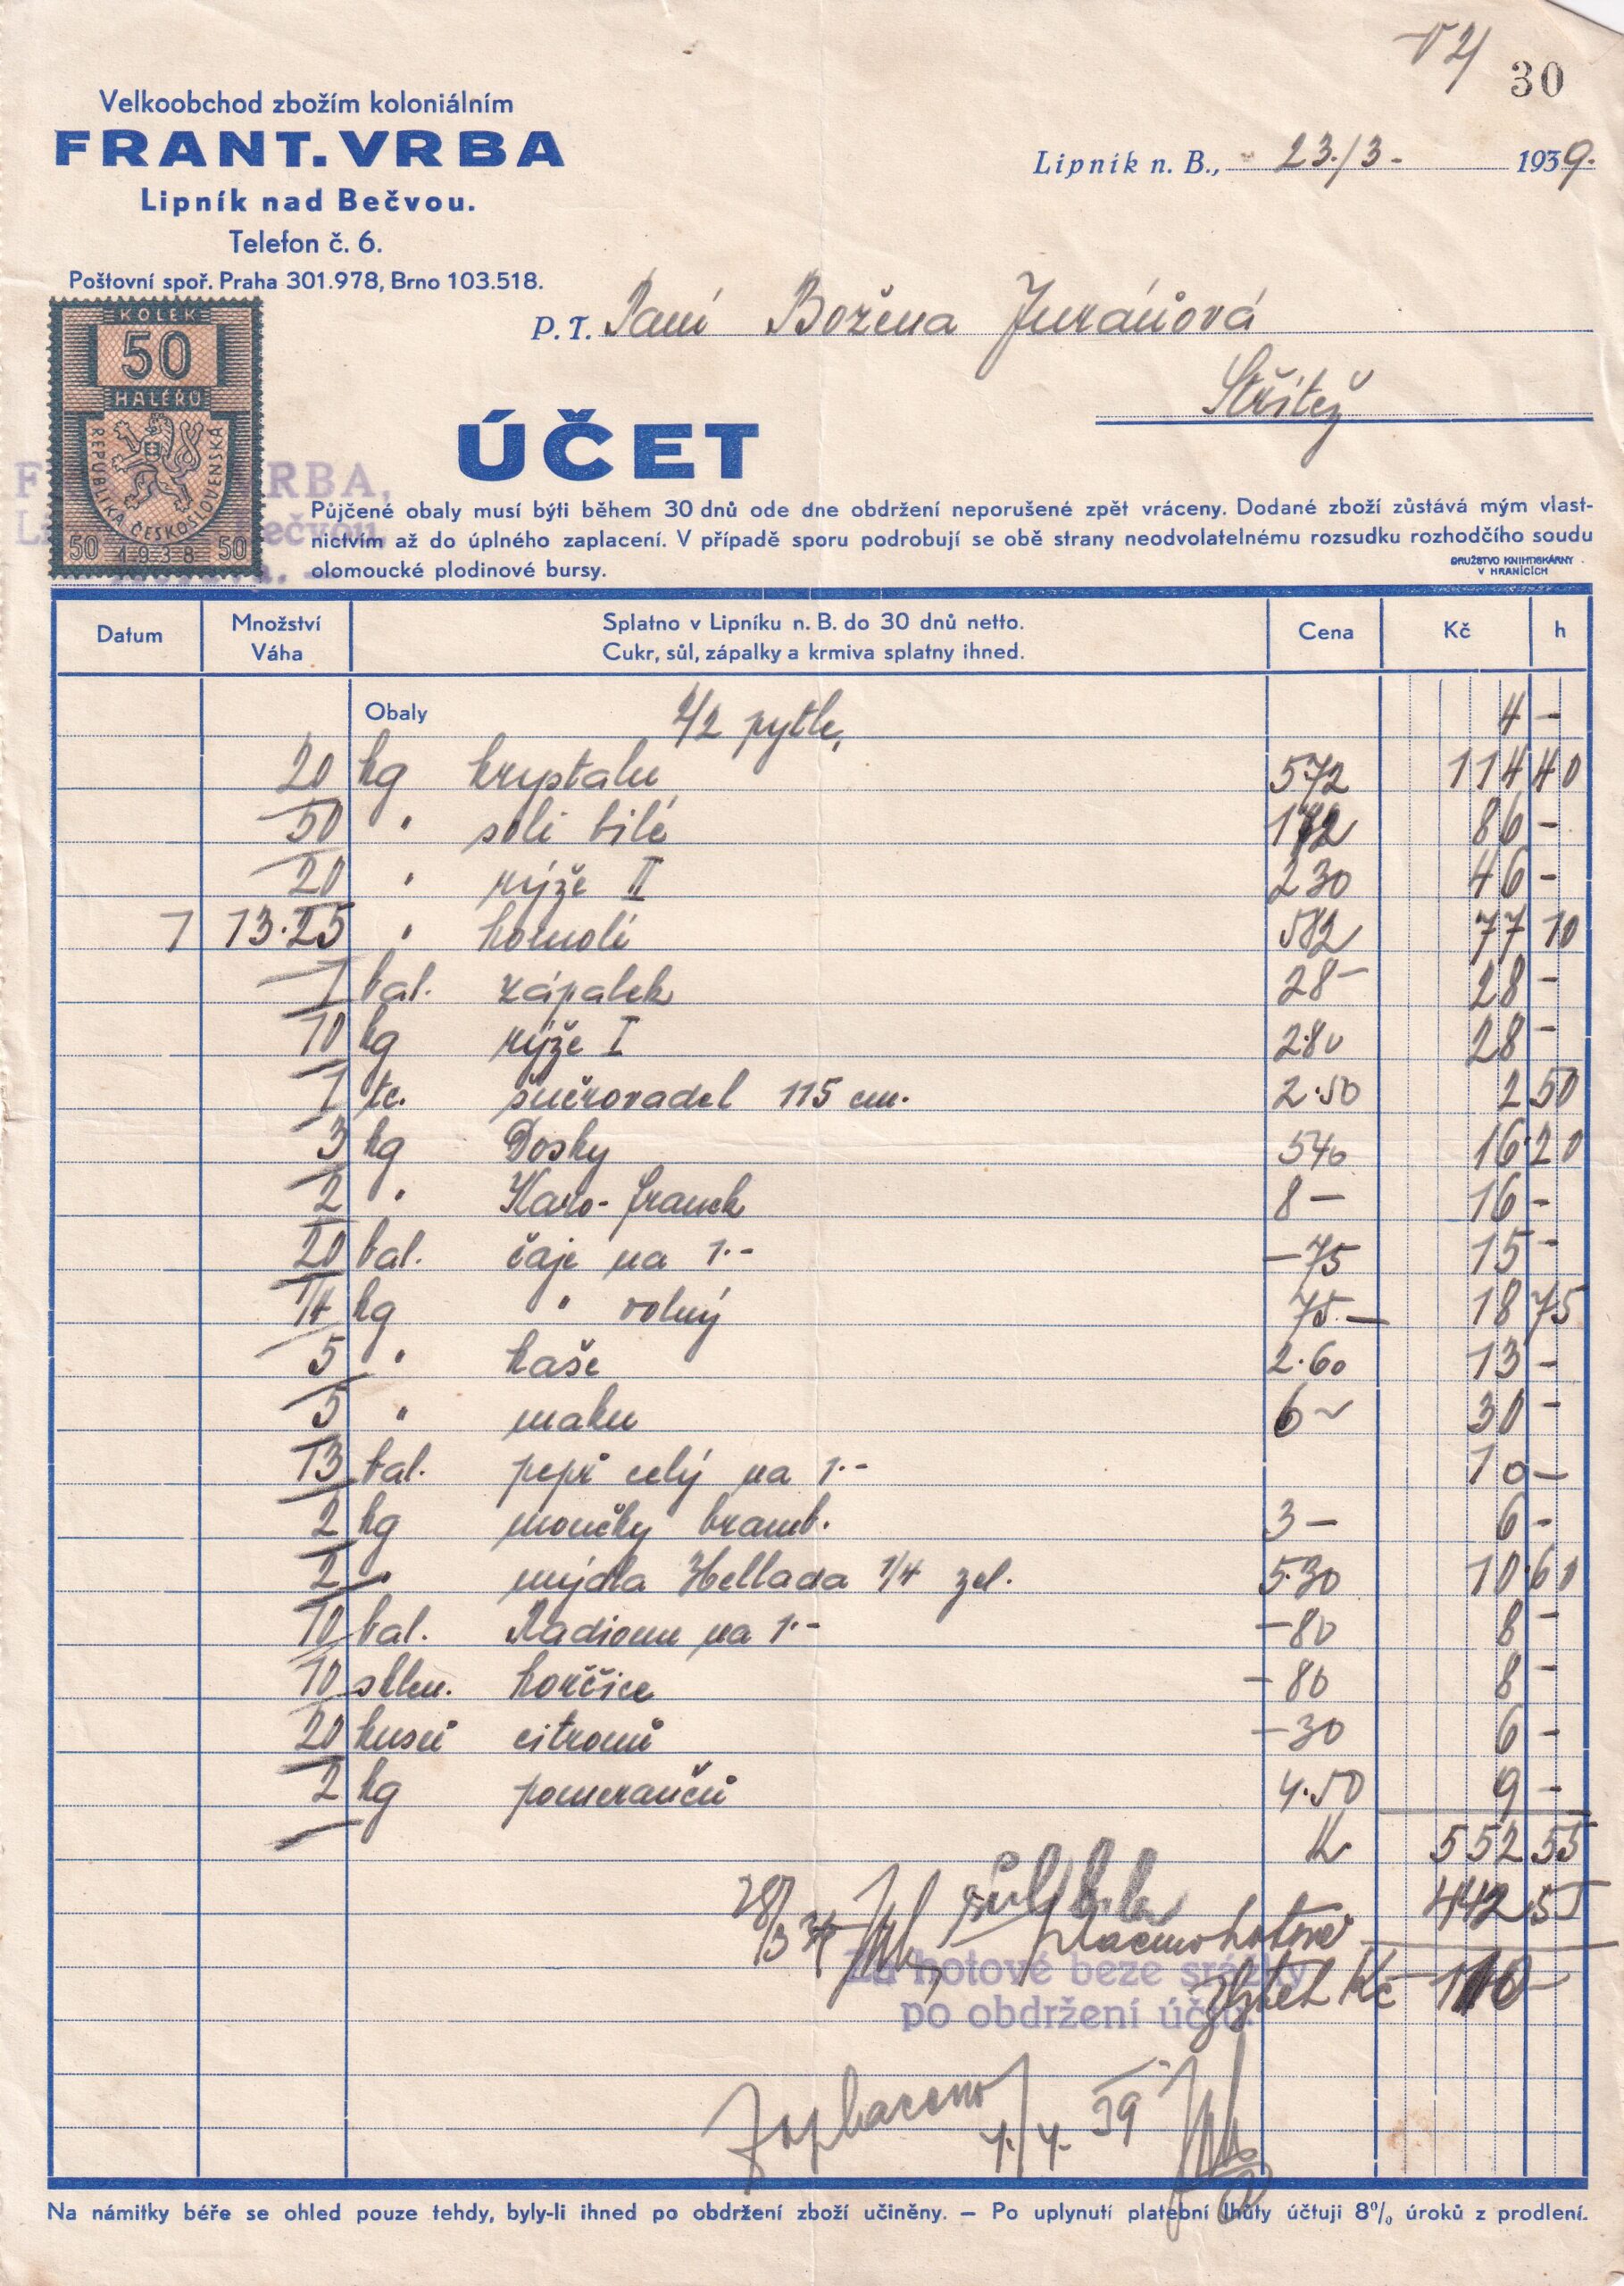 30
Velkoobchod zbožím koloniálním
FRANT. VRBA
Lipník nad Bečvou.
Telefon č. 6.
Poštovní spoř. Praha 301.978, Brno 103.518.
Lipník n. B., 23./3. 1939.
P. T. Paní Božena Juráňová
Střítěž
KOLEK
50
HALÉŘŮ
REPUBLIKA ČESKOSLOVENSKÁ
50 1938 50
ÚČET
Půjčené obaly musí býti během 30 dnů ode dne obdržení neporušené zpět vráceny. Dodané zboží zůstává mým vlast-
nictvím až do úplného zaplacení. V případě sporu podrobují se obě strany neodvolatelnému rozsudku rozhodčího soudu
olomoucké plodinové bursy.
DRUŽSTVO KNIHTISKÁRNY
V HRANICÍCH
Datum Množství Váha Splatno v Lipníku n. B. do 30 dnů netto. Cukr, sůl, zápalky a krmiva splatny ihned. Cena Kč h
Obaly 2/2 pytle, 4 -
20 kg krystalu 572 114 40
50 " soli bílé 172 86 -
20 " rýže II 230 46 -
1 13.25 " homolí 582 77 10
1 bal. zápalek 28- 28 -
10 kg rýže I 2.80 28 -
1 tc. šněrovadel 115 cm. 2.50 2 50
3 kg Dosky 540 16 20
2 " Karo-franck 8- 16 -
20 bal. čaje na 1.- -75 15 -
1/4 kg " volný 75.- 18 75
5 " kaše 2.60 13 -
5 " maku 6- 30 -
13 bal. pepř celý na 1.- 10 -
2 kg moučky bramb. 3- 6 -
2 " mýdla Hellada 1/4 zel. 5.30 10 60
10 bal. Radionu na 1.- -80 8 -
10 sklen. hořčice -80 8 -
20 kusů citronů -30 6 -
2 kg pomerančů 4.50 9 -
K 552 55
28/3 39 placeno hotově 442 55
Za hotové beze srážky
po obdržení účtu.
zbytek Kč 110 -
Zaplaceno 1./4. 39
Na námitky béře se ohled pouze tehdy, byly-li ihned po obdržení zboží učiněny. — Po uplynutí platební lhůty účtuji 8% úroků z prodlení.